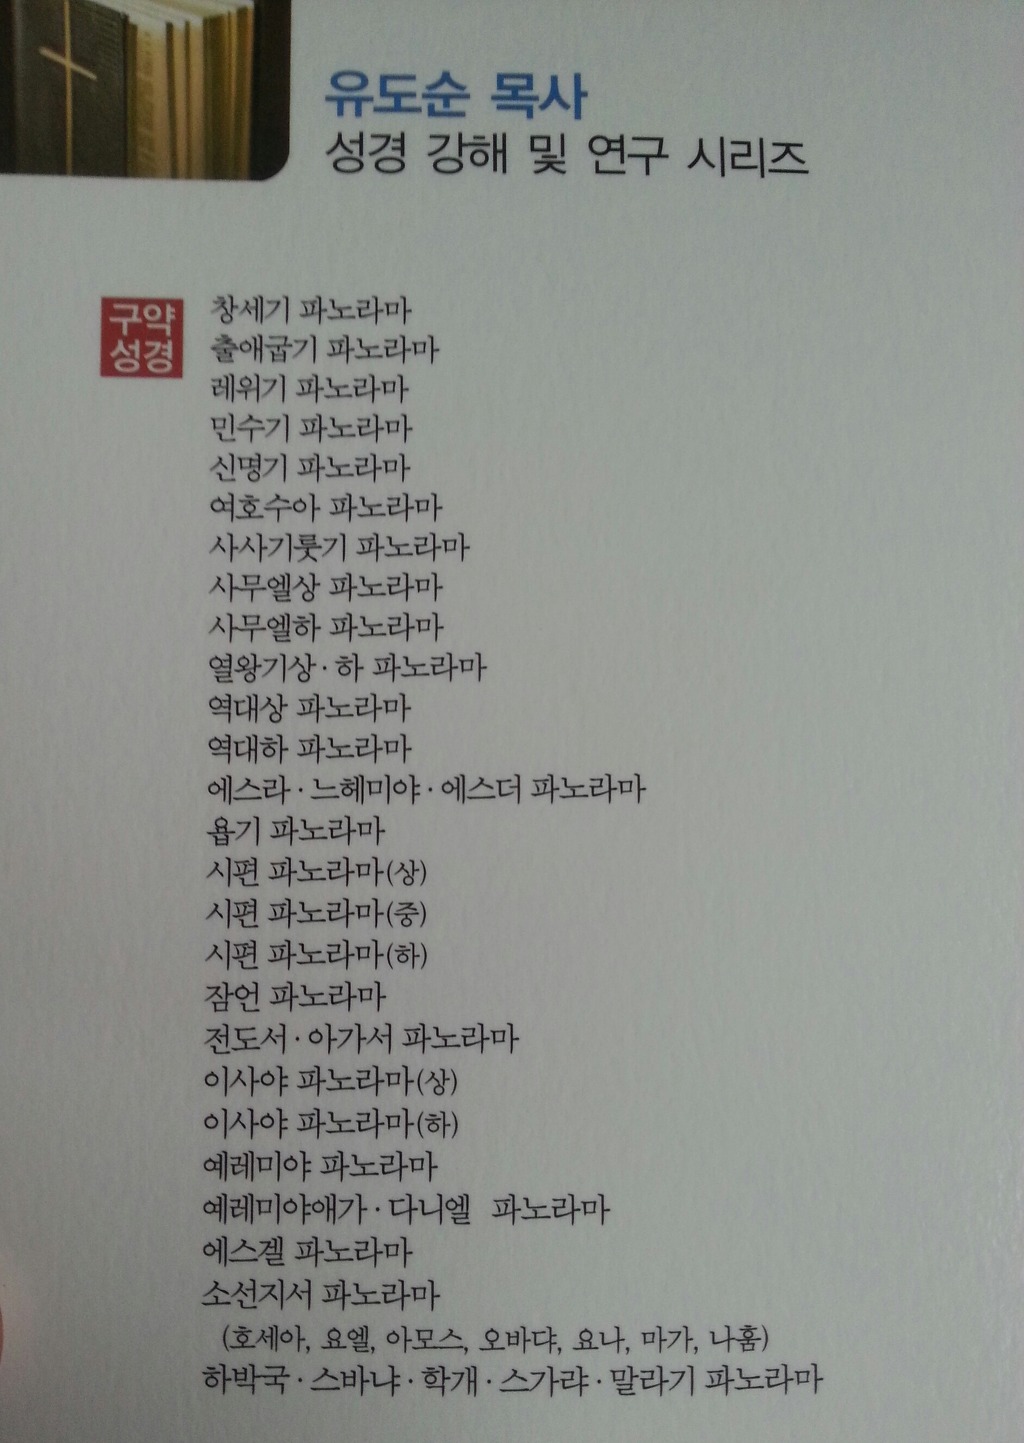 유도순 목사
성경 강해 및 연구 시리즈
구약
성경
창세기 파노라마
출애굽기 파노라마
레위기 파노라마
민수기 파노라마
신명기 파노라마
여호수아 파노라마
사사기룻기 파노라마
사무엘상 파노라마
사무엘하 파노라마
열왕기상·하 파노라마
역대상 파노라마
역대하 파노라마
에스라·느헤미야·에스더 파노라마
욥기 파노라마
시편 파노라마(상)
시편 파노라마(중)
시편 파노라마(하)
잠언 파노라마
전도서·아가서 파노라마
이사야 파노라마(상)
이사야 파노라마(하)
예레미야 파노라마
예레미야애가·다니엘 파노라마
에스겔 파노라마
소선지서 파노라마
(호세아, 요엘, 아모스, 오바댜, 요나, 마가, 나훔)
하박국·스바냐·학개·스가랴·말라기 파노라마